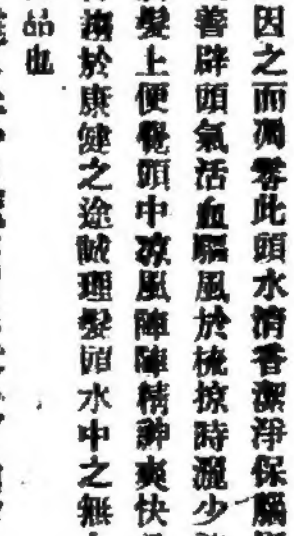 因之而凋零此頭水清香潔淨保腦
善辟頭氣活血驅風於梳掠時灑少
髮上便覺頭中凉風陣陣精神爽快
趨於康健之途誠理髮頭水中之無
品也